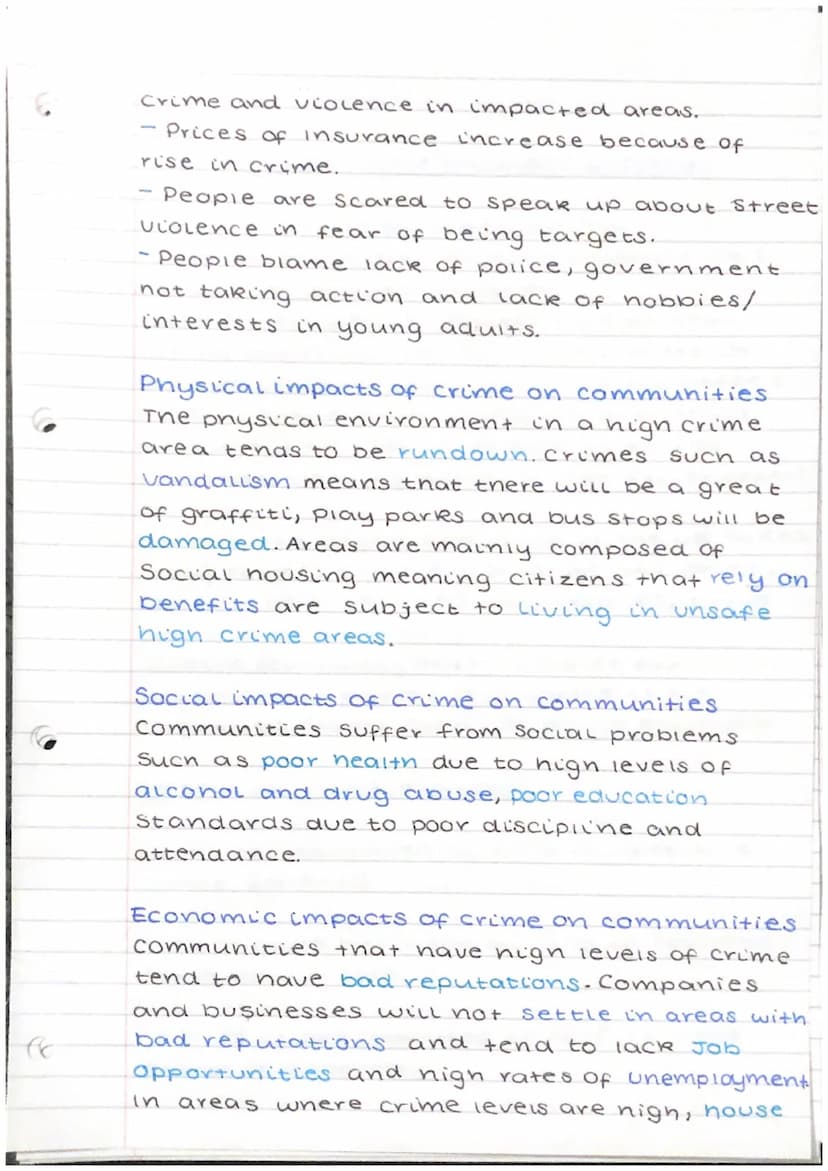 crime and violence in impacted areas.
- Prices of insurance increase because of
rise in crime.
- People are scared to speak up about street
violence in fear of being targets.
- People blame lack of police, government
not taking action and lack of hobbies/
interests in young adults.
Physical impacts of crime on communities
The physical environment in a high crime
area tends to be rundown. Crimes such as
vandalism means that there will be a great
of graffiti, play parks and bus stops will be
damaged. Areas are mainly composed of
social housing meaning citizens that rely on
benefits are subject to living in unsafe
high crime areas.
Social impacts of crime on communities
Communities suffer from social problems
such as poor health due to high levels of
alcohol and drug abuse, poor education
standards due to poor discipline and
attendance.
Economic impacts of crime on communities
Communities that have high levels of crime
tend to have bad reputations. Companies
and businesses will not settle in areas with
bad reputations and tend to lack job
opportunities and high rates of unemployment
In areas where crime levels are high, house